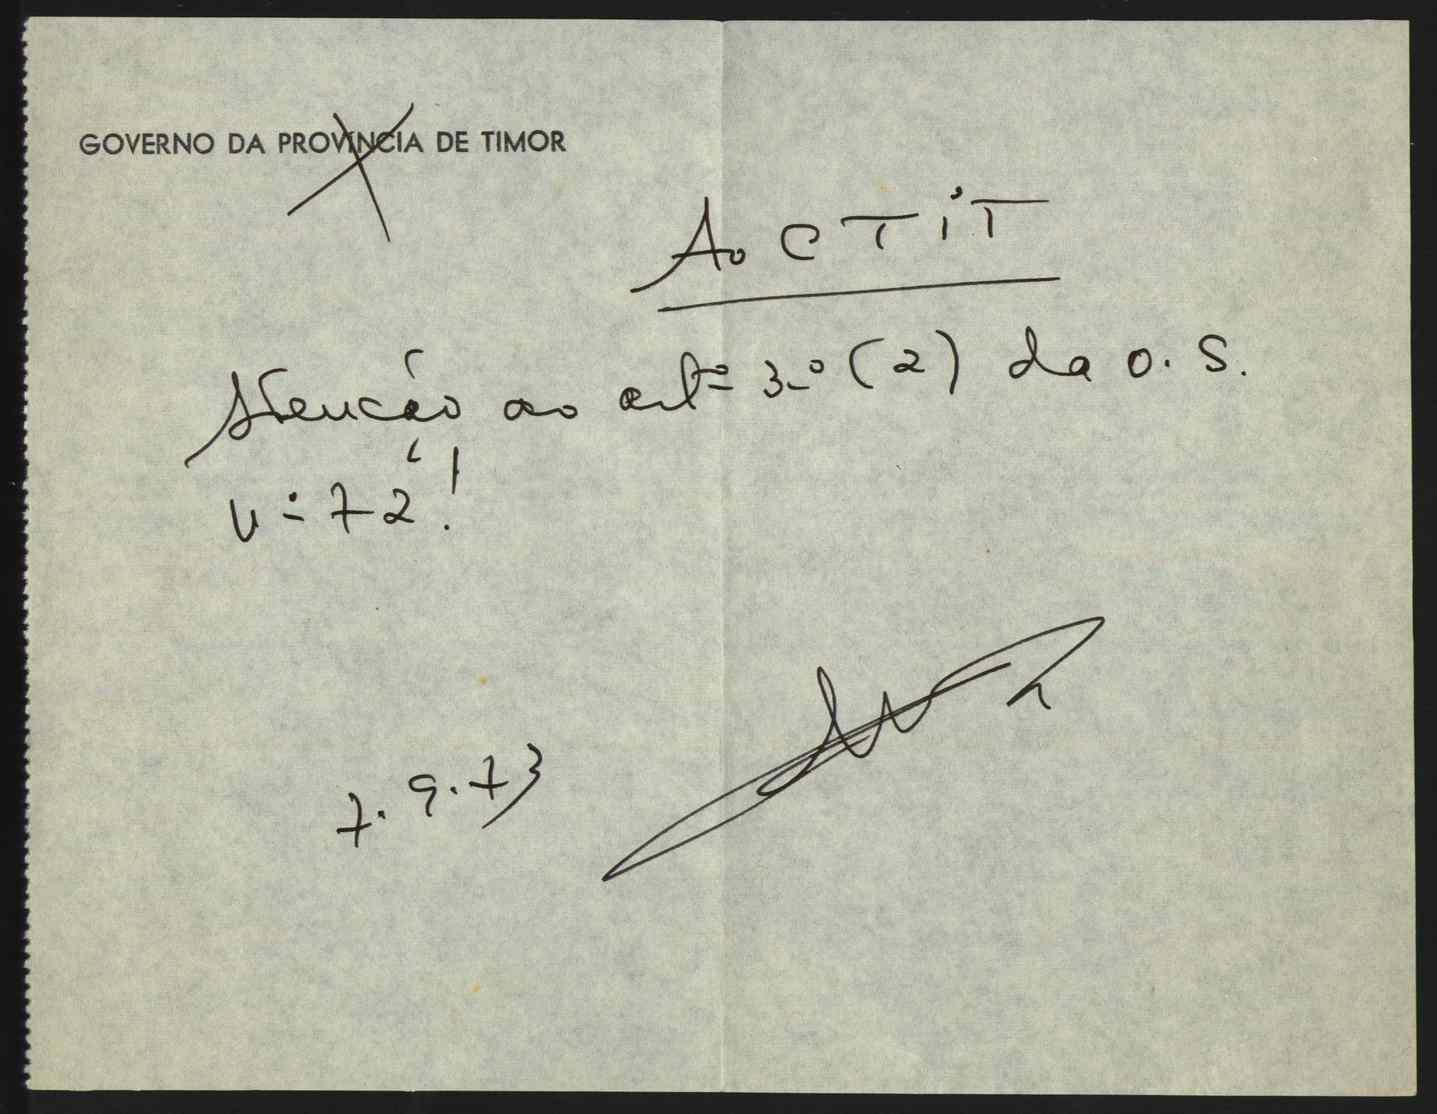 GOVERNO DA PROVÍNCIA DE TIMOR
Ao CTIT
Atenção ao artº 3-º (2) da O.S.
nº 72!
7.9.73